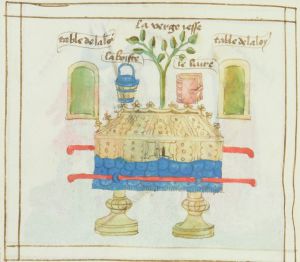 la verge iesse
table de la loy
table de la loy
la boiste
le liure